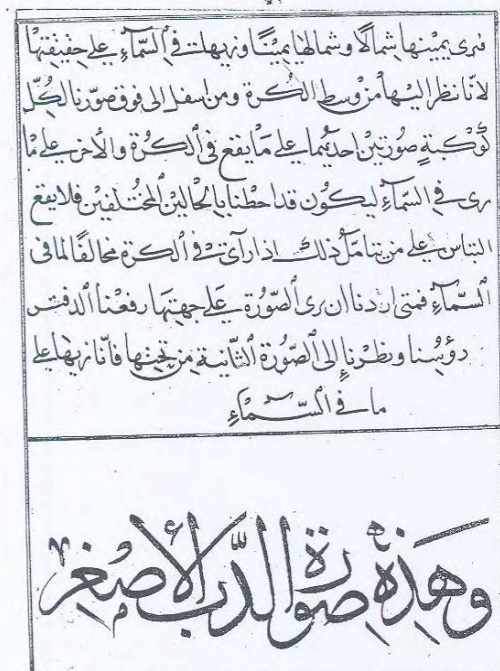 فنرى يمينها شمالًا وشمالها يمينًا ونريها في السَّمآءِ على حقيقتها
لانّا ننظر اليها من وسط الكُرة ومن اسفل الى فوق صوّرنا لكُلّ
كَوكبةٍ صُورتين احديهُما على مَا يقع في الكُرة والأخرى على مَا
يرى في السَّمآءِ ليكُون قد احطنا بالحالين المختلفين فلا يقع
التباس على من تأمّل ذلك اذا رآى في الكرة مخالفًا لما في
السَّمآءِ فمتى اردنا ان نرى الصّورة على جهتها رفعنا الدفتر
رؤسِنا ونظرنا إلى الصّورة الثّانية مِن تحتِها فانّا نريها على
ما في السَّمآءِ
وَهَذِهِ صورة الدّب الأصغر